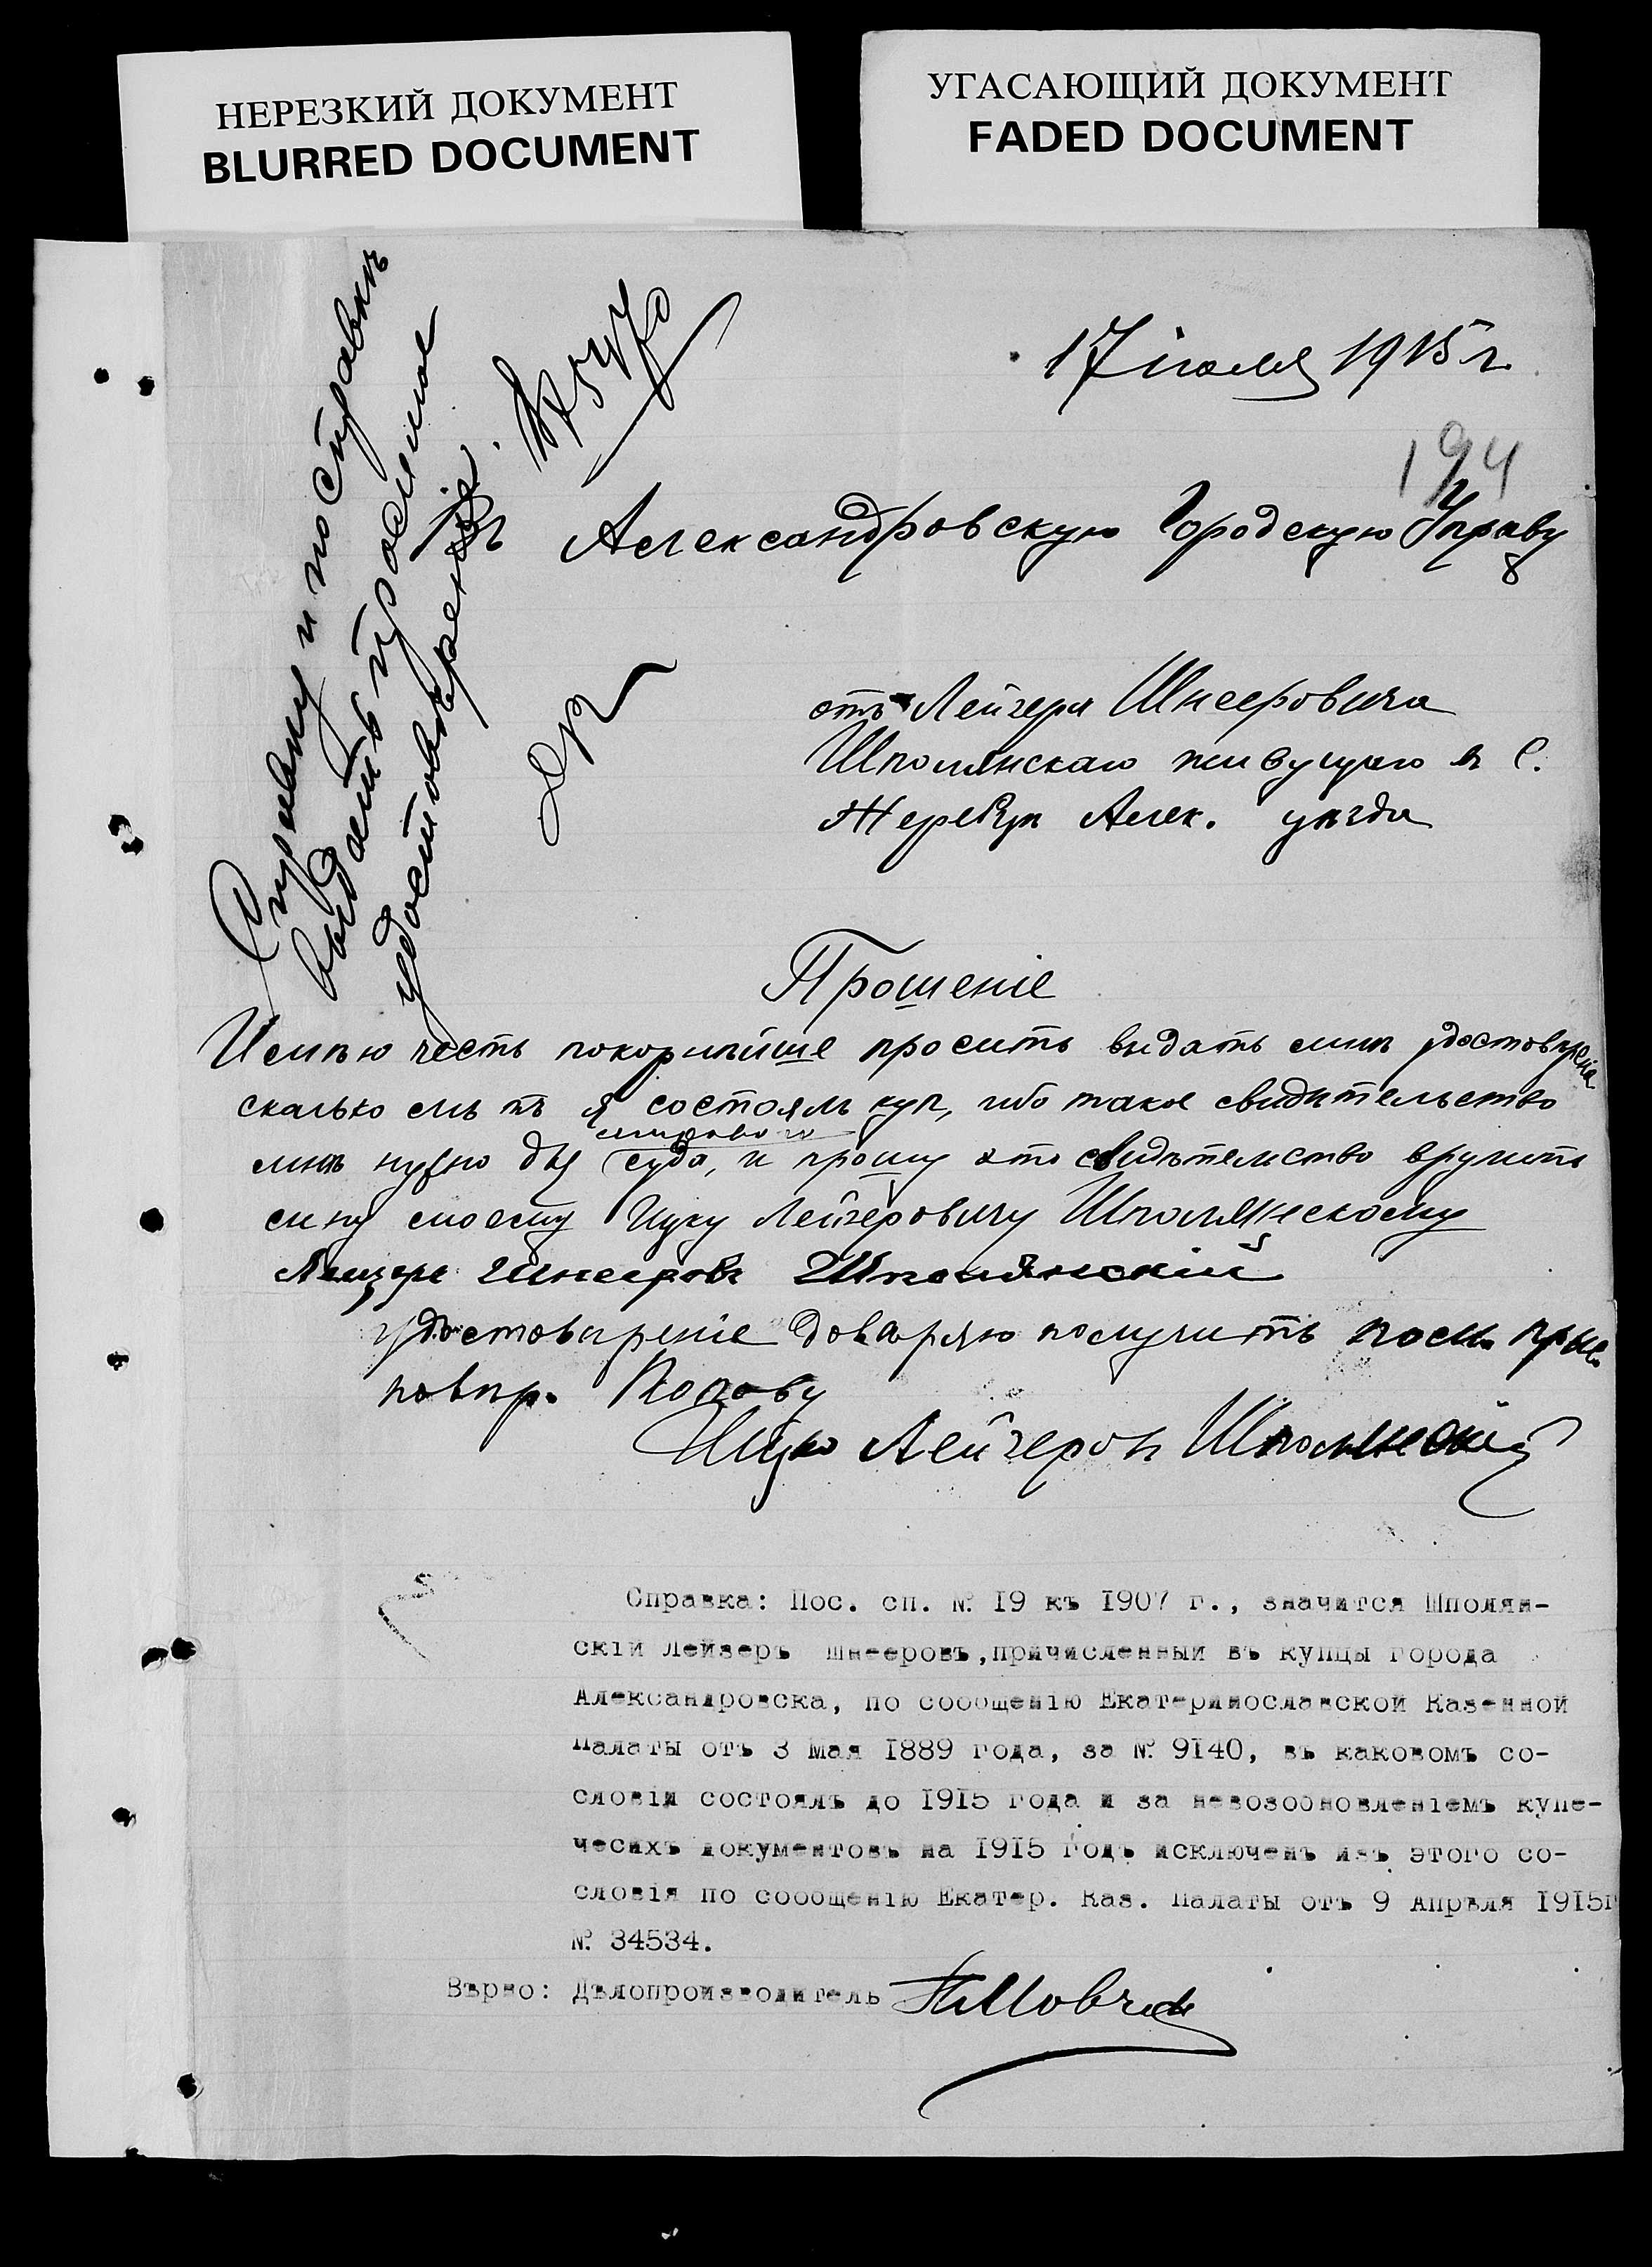 НЕРЕЗКИЙ ДОКУМЕНТ
BLURRED DOCUMENT
УГАСАЮЩИЙ ДОКУМЕНТ
FADED DOCUMENT
17 іюля 1915 г.
194
Справку и по справкѣ
выдать просимое
удостовѣреніе.
№ 5470
Въ Александровскую Городскую Управу
отъ Лейзера Шнееровича
Шполянскаго живущаго въ С.
Жеребцѣ Алек. уѣзда
Прошеніе
Имѣю честь покорнѣйше просить выдать мнѣ удостовѣрение
сколько лѣтъ я состоялъ куп, ибо такое свидѣтельство
мирового
мнѣ нужно для суда, и прошу это свидѣтельство вручить
сыну моему Ицку Лейзеровичу Шполянскому
Лейзеръ Шнееровъ Шполянскій
удостовѣреніе довѣряю получить пом. прис.
повѣр. Попову
Ицко Лейзеровъ Шполянскій
Справка: Пос. сп. № 19 къ 1907 г., значится Шполян-
скій Лейзеръ Шнееровъ, причисленный въ купцы города
Александровска, по сообщенію Екатеринославской Казенной
Палаты отъ 3 Мая 1889 года, за № 9140, въ каковомъ со-
словіи состоялъ до 1915 года и за невозобновленіемъ купе-
чесихъ документовъ на 1915 годъ исключенъ изъ этого со-
словія по сообщенію Екатер. Каз. Палаты отъ 9 Апрѣля 1915г
№ 34534.
Вѣрно: Дѣлопроизводитель